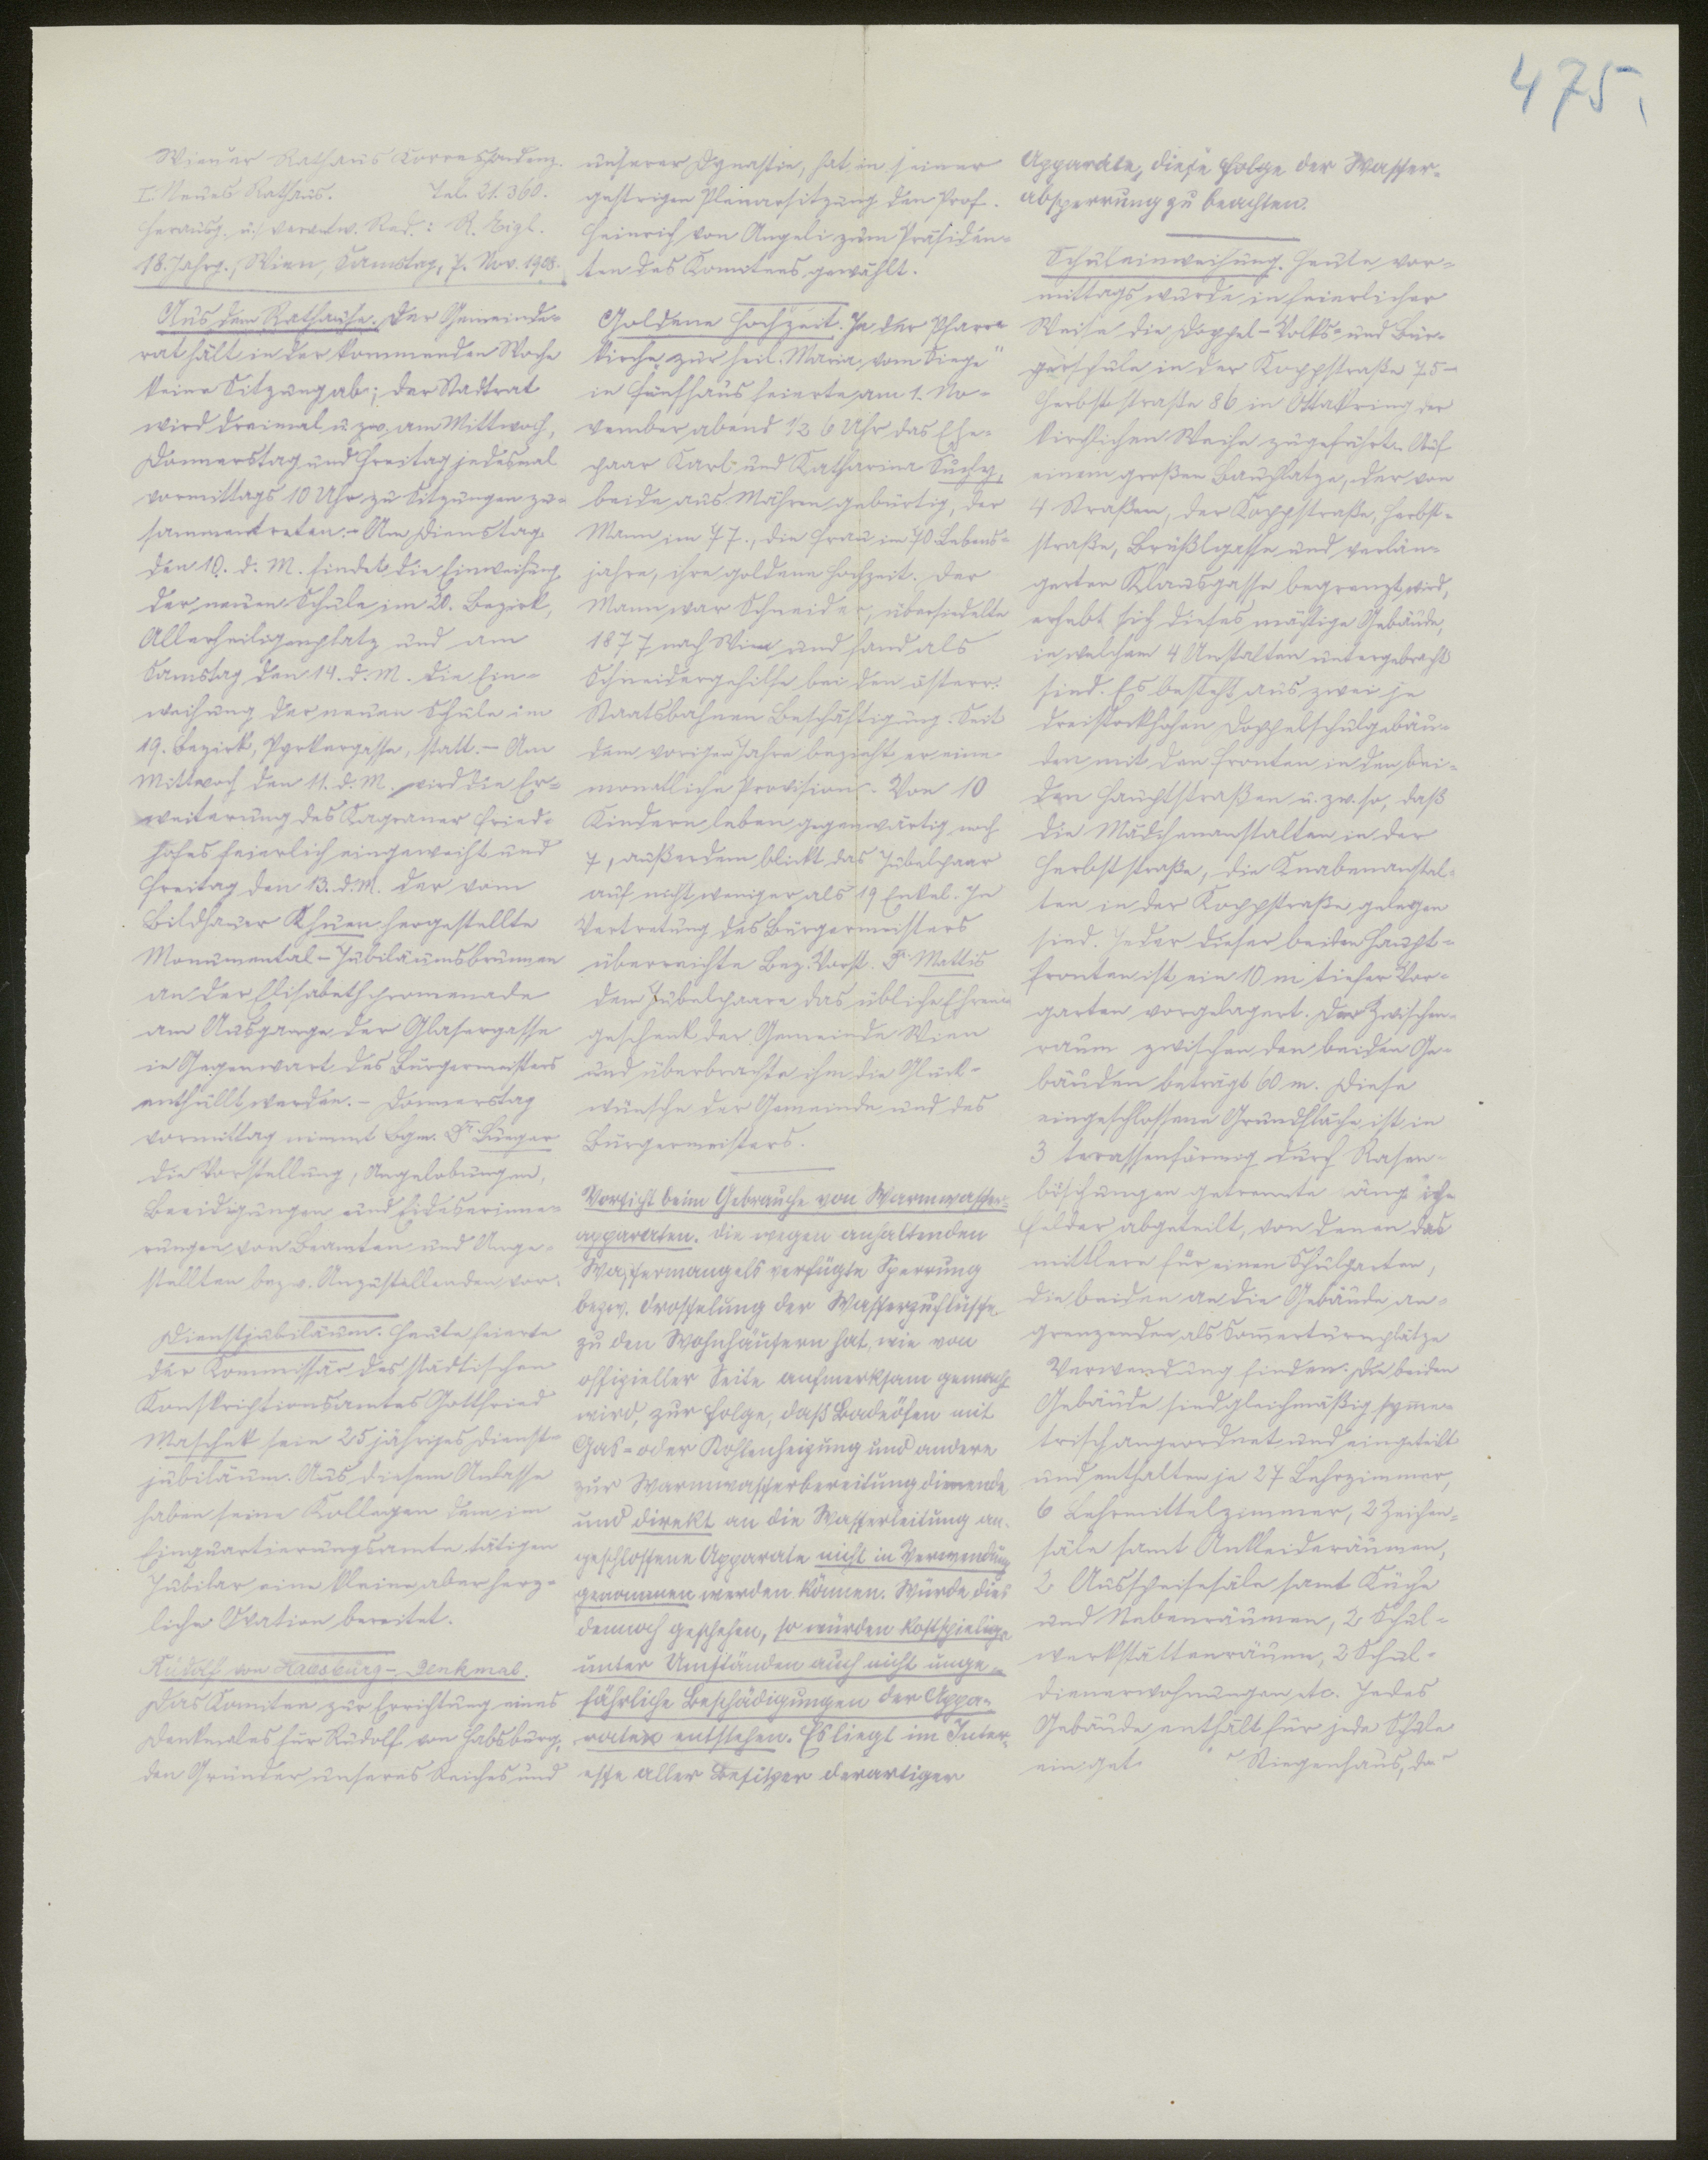 475.
Wiener Rathaus Correspondenz.
I. Neues Rathaus. Tel. 21.360.
Herausg. u. verantw. Red.: R. Eigl.
18. Jahrg., Wien, Samstag, 7. Nov. 1908.
Aus dem Rathause. Der Gemeinde-
rat hält in der kommenden Woche
keine Sitzung ab; der Stadtrat
wird dreimal u. zw. am Mittwoch,
Donnerstag und Freitag jedesmal
vormittags 10 Uhr zu Sitzungen zu-
sammentreten. - Am Dienstag
den 10. d. M. findet die Einweihung
der neuen Schule im 20. Bezirk,
Allerheiligenplatz und am
Samstag den 14. d. M. die Ein-
weihung der neuen Schule im
19. Bezirk, Pyrkergasse, statt. - Am
Mittwoch den 11. d. M. wird die Er-
weiterung des Kagraner Fried-
hofes feierlich eingeweiht und
Freitag den 13. d. M. der vom
Bildhauer Khuen hergestellte
Monumental-Jubiläumsbrunnen
an der Elisabethpromenade
am Ausgange der Glasergasse
in Gegenwart des Bürgermeisters
enthüllt werden. - Donnerstag
vormittag nimmt Bgm. Dr. Lueger
die Vorstellung, Angelobungen,
Beeidigungen und Eideserinne-
rungen von Beamten und Ange-
stellten bezw. Anzustellenden vor.
Dienstjubiläum. Heute feierte
der Kommissär des städtischen
Konskriptionsamtes Gottfried
Maschek sein 25jähriges Dienst-
jubiläum. Aus diesem Anlasse
haben seine Kollegen dem im
Einquartierungsamte tätigen
Jubilar eine kleine aber herz-
liche Ovation bereitet.
Rudolf von Habsburg-Denkmal.
Das Komitee zur Errichtung eines
Denkmales für Rudolf von Habsburg,
den Gründer unseres Reiches und
unserer Dynastie, hat in seiner
gestrigen Plenarsitzung den Prof.
Heinrich von Angeli zum Präsiden-
ten des Komitees gewählt.
Goldene Hochzeit. In der Pfarr-
kirche zur heil. Maria vom Siege"
in Fünfhaus feierte am 1. No-
vember abend 1/2 6 Uhr das Ehe-
paar Karl und Katharina Suchy,
beide aus Mähren gebürtig, der
Mann im 77., die Frau im 70. Lebens-
jahre, ihre goldene Hochzeit. Der
Mann war Schneider, übersiedelte
1877 nach Wien und fand als
Schneidergehilfe bei den österr.
Staatsbahnen Beschäftigung. Seit
dem vorigen Jahre bezieht er eine
monatliche Provision. Von 10
Kindern leben gegenwärtig noch
7, außerdem blickt das Jubelpaar
auf nicht weniger als 19 Enkel. In
Vertretung des Bürgermeisters
überreichte Bez. Vorst. Dr. Mattis
dem Jubelpaare das übliche Ehren-
geschenk der Gemeinde Wien
und überbrachte ihm die Glück-
wünsche der Gemeinde und des
Bürgermeisters.
Vorsicht beim Gebrauche von Warmwasser-
apparaten. Die wegen anhaltenden
Wassermangels verfügte Sperrung
bezw. Drosselung der Wasserzuflüsse
zu den Wohnhäusern hat, wie von
offizieller Seite aufmerksam gemacht
wird, zur Folge, daß Badeöfen mit
Gas- oder Kohlenheizung und andere
zur Warmwasserbereitung dienende
und direkt an die Wasserleitung an-
geschlossene Apparate nicht in Verwendung
genommen werden können. Würde dies
dennoch geschehen, so würden kostspielige
unter Umständen auch nicht unge-
fährliche Beschädigungen der Appa-
rate entstehen. Es liegt im Inter-
esse aller Besitzer derartiger
Apparate, diese Folge der Wasser-
absperrung zu beachten.
Schuleinweihung. Heute vor-
mittags wurde in feierlicher
Weise die Doppel-Volks- und Bür-
gerschule in der Koppstraße 75-
Herbststraße 86 in Ottakring der
kirchlichen Weihe zugeführt. Auf
einem großen Bauplatze, der von
4 Straßen, der Koppstraße, Herbst-
straße, Brüßlgasse und verlän-
gerten Klausgasse begrenzt wird,
erhebt sich dieses mächtige Gebäude,
in welchem 4 Anstalten untergebracht
sind. Es besteht aus zwei je
dreistockhohen Doppelschulgebäu-
den mit den Fronten in den bei-
den Hauptstraßen u. zw. so, daß
die Mädchenanstalten in der
Herbststraße, die Knabenanstal-
ten in der Koppstraße gelegen
sind. Jeder dieser beiden Haupt-
fronten ist ein 10 m tiefer Vor-
garten vorgelagert. Der Zwischen-
raum zwischen den beiden Ge-
bäuden beträgt 60 m. Diese
eingeschlossene Grundfläche ist in
3 terassenförmig durch Rasen-
böschungen getrennte
Felder abgeteilt, von denen das
mittlere für einen Schulgarten,
die beiden an die Gebäude an-
grenzenden als Sommerturnplätze
Verwendung finden. Die beiden
Gebäude sind gleichmäßig symme-
trisch angeordnet und eingeteilt
und enthalten je 27 Lehrzimmer,
6 Lehrmittelzimmer, 2 Zeichen-
säle samt Ankleideräumen,
2 Ausspeisesäle samt Küche
und Nebenräumen, 2 Schul-
werkstättenräume, 2 Schul-
dienerwohnungen etc. Jedes
Gebäude enthält für jede Schule
ein Stiegenhaus,